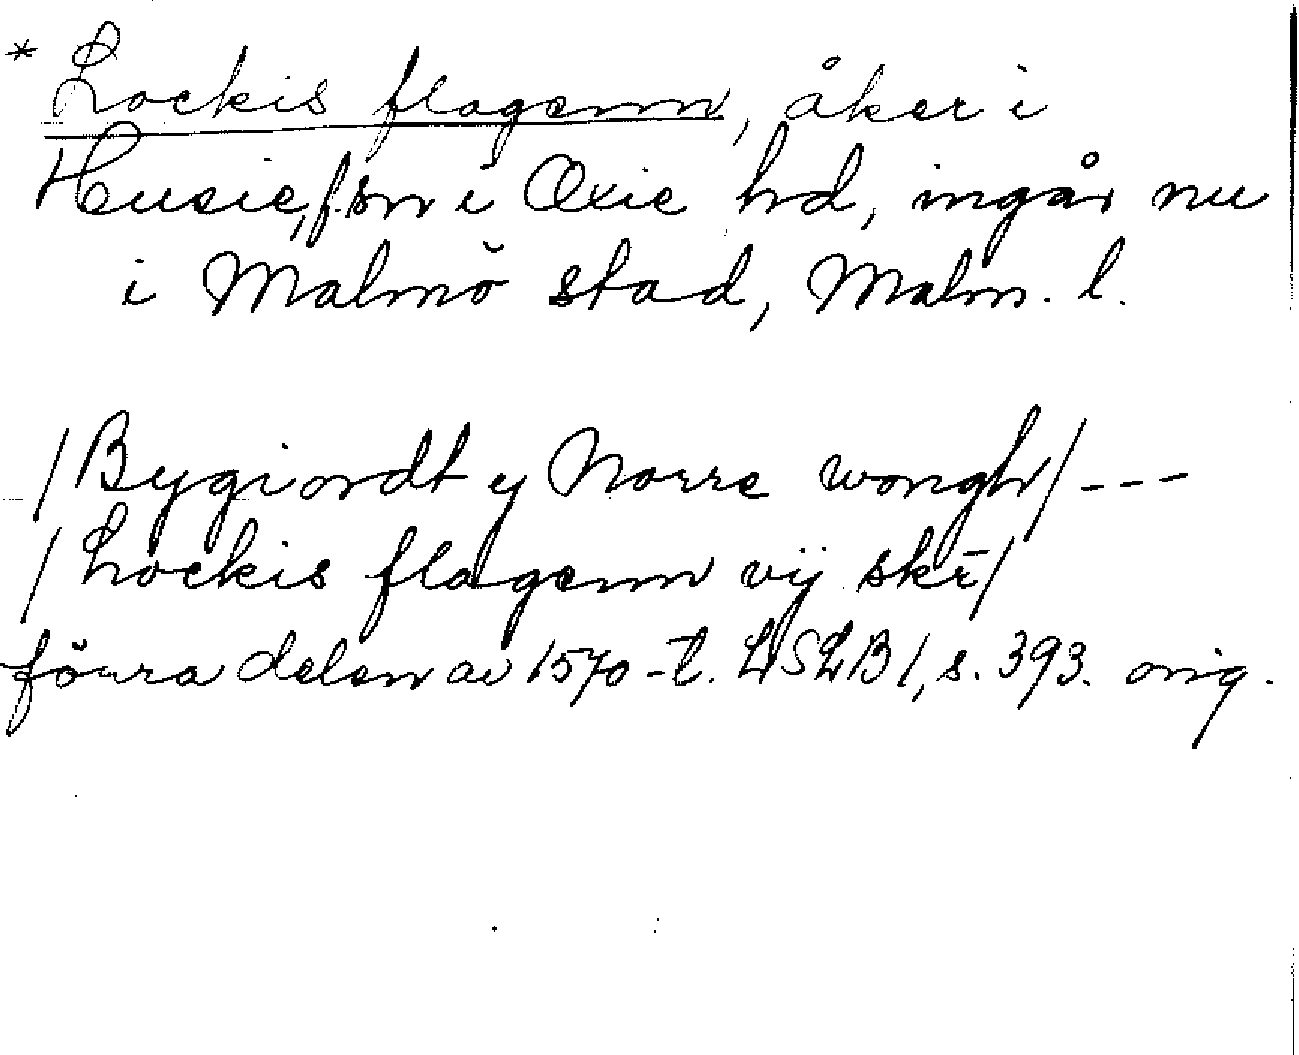 * Lockis flagenn, åker i
Husie, f. sn i Oxie hd, ingår nu
i Malmö stad, Malm. l.
/Bygiordt y Norre wongh/ ---
/Lockis flagenn vij skr̄/
förra delen av 1570-t. LSLB 1, s. 393. orig.